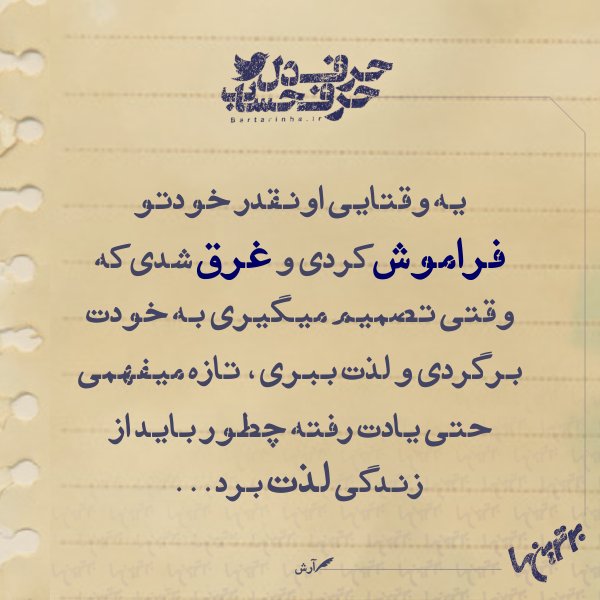 حرف دل
حرف حساب
Bartarinha.ir
یه وقتایی اونقدر خودتو
فراموش کردی و غرق شدی که
وقتی تصمیم میگیری به خودت
برگردی و لذت ببری، تازه میفهمی
حتی یادت رفته چطور باید از
زندگی لذت برد...
آرش
برترین‌ها